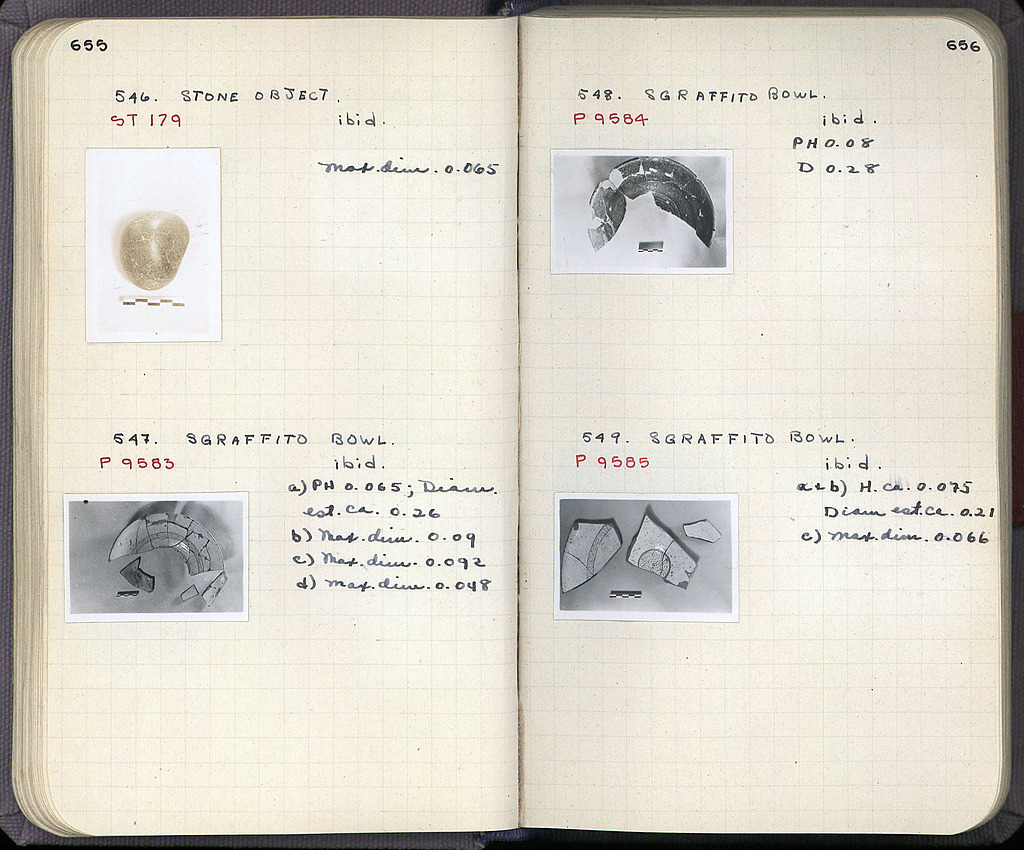 655
546. STONE OBJECT.
ST 179 ibid.
Max. dim. 0.065
547. SGRAFFITO BOWL.
P 9583 ibid.
a) PH 0.065; Diam.
est. ca. 0.26
b) Max. dim. 0.09
c) Max. dim. 0.092
d) Max. dim. 0.048
656
548. SGRAFFITO BOWL.
P 9584 ibid.
PH 0.08
D 0.28
549. SGRAFFITO BOWL.
P 9585 ibid.
a+b) H. ca. 0.075
Diam est. ca. 0.21
c) Max. dim. 0.066